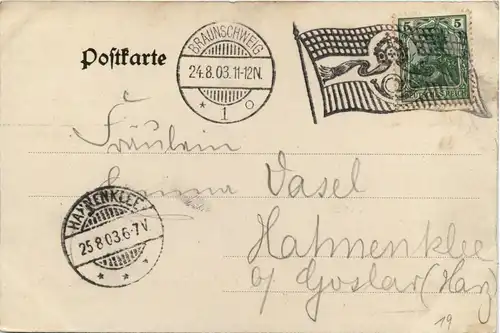 Postkarte
BRAUNSCHWEIG
24.8.03.11-12N.
* 1 o
5
Fräulein
Emma Vasel
HAHNENKLEE
25.8.03.6-7V.
* * *
Hahnenklee
b/ Goslar (Harz)
19